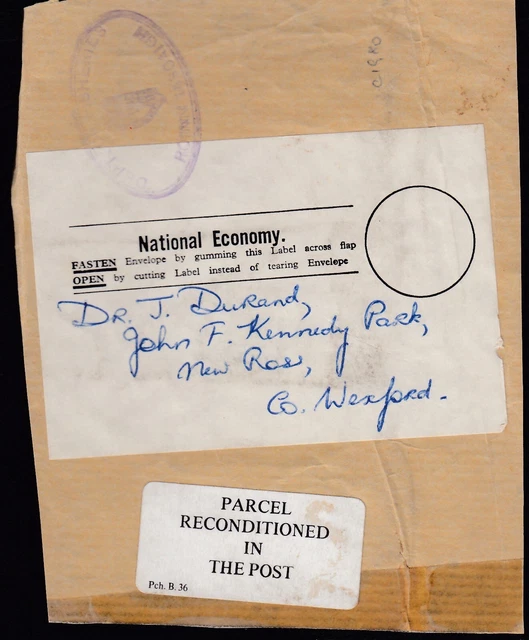 c1980
National Economy.
FASTEN Envelope by gumming this Label across flap
OPEN by cutting Label instead of tearing Envelope
Dr. J. Durand,
John F. Kennedy Park,
New Ross,
Co. Wexford.
PARCEL
RECONDITIONED
IN
THE POST
Pch. B. 36